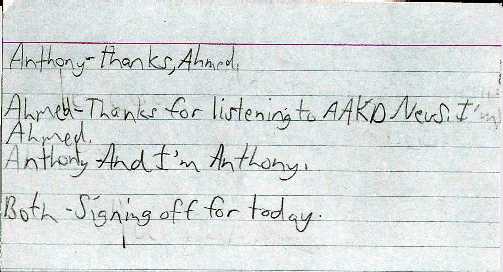 Anthony-thanks, Ahmed.
Ahmed-Thanks for listening to AAKD News. I'm
Ahmed.
Anthony-And I'm Anthony.
Both-Signing off for today.